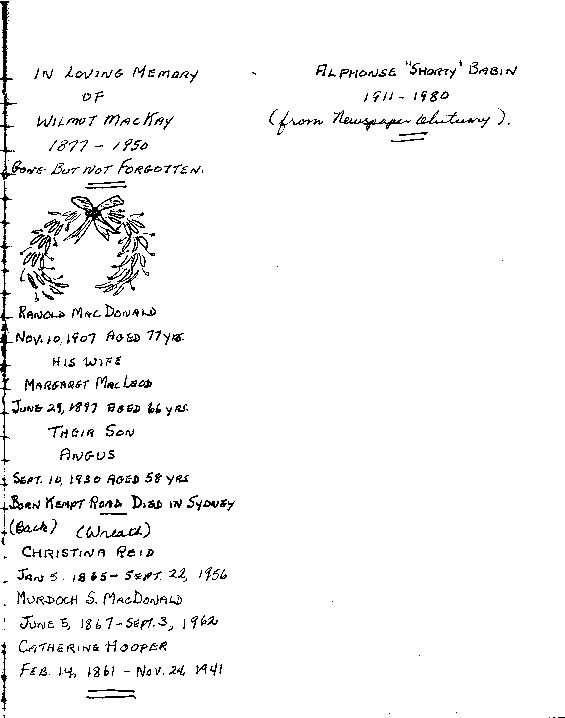 IN LOVING MEMORY
OF
WILMOT MACKAY
1877 - 1950
GONE BUT NOT FORGOTTEN.
RANOLD MACDONALD
NOV. 10, 1907 AGED 77 YRS.
HIS WIFE
MARGARET MACLEOD
JUNE 29, 1897 AGED 66 YRS.
THEIR SON
ANGUS
SEPT. 10, 1930 AGED 58 YRS
BORN KEMPT ROAD DIED IN SYDNEY
(Back) (Wreath)
CHRISTINA REID
JAN 5. 1865 - SEPT. 22, 1956
MURDOCH S. MACDONALD
JUNE 5, 1867 - SEPT. 3, 1962
CATHERINE HOOPER
FEB. 14, 1861 - NOV. 24, 1941
ALPHONSE "SHORTY" BABIN
1911 - 1980
(from Newspaper Obituary).